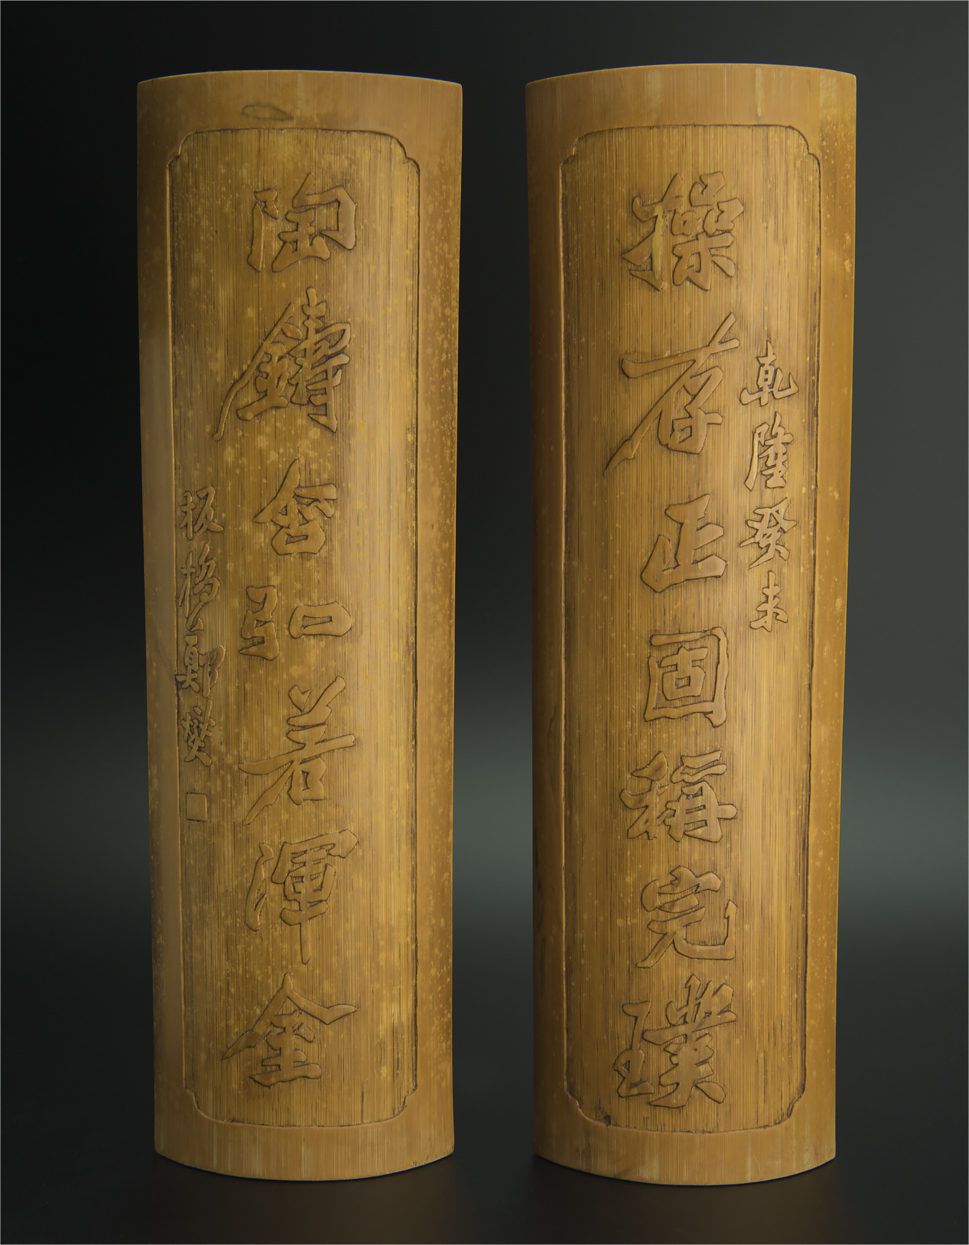 乾隆癸未
操存正固稱完璞
陶鑄含弘若渾金
板橋鄭燮